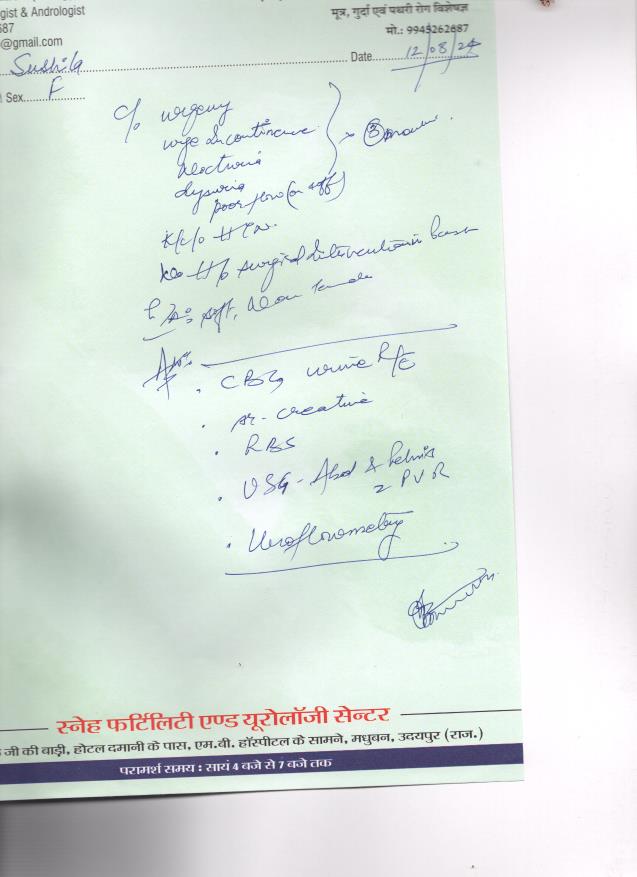 gist & Andrologist
687
@gmail.com
मूत्र, गुर्दा एवं पथरी रोग विशेषज्ञ
मो.: 9945262687
Sushila Date 12/08/24
Sex F
c/o urgency
urge Incontinence
Nocturia
dysuria
poor flow (on & off)
K/c/o HTN.
No H/o surgical Intervention in
P/A: soft, Non tender
Adv:
• CBC, urine R/E
• sr. creatine
• RBS
• USG - Abd & Pelvis
PVR
• Uroflowmetry
स्नेह फर्टिलिटी एण्ड यूरोलॉजी सेन्टर
जी की बाड़ी, होटल दमानी के पास, एम.बी. हॉस्पीटल के सामने, मधुबन, उदयपुर (राज.)
परामर्श समय : सायं 4 बजे से 7 बजे तक